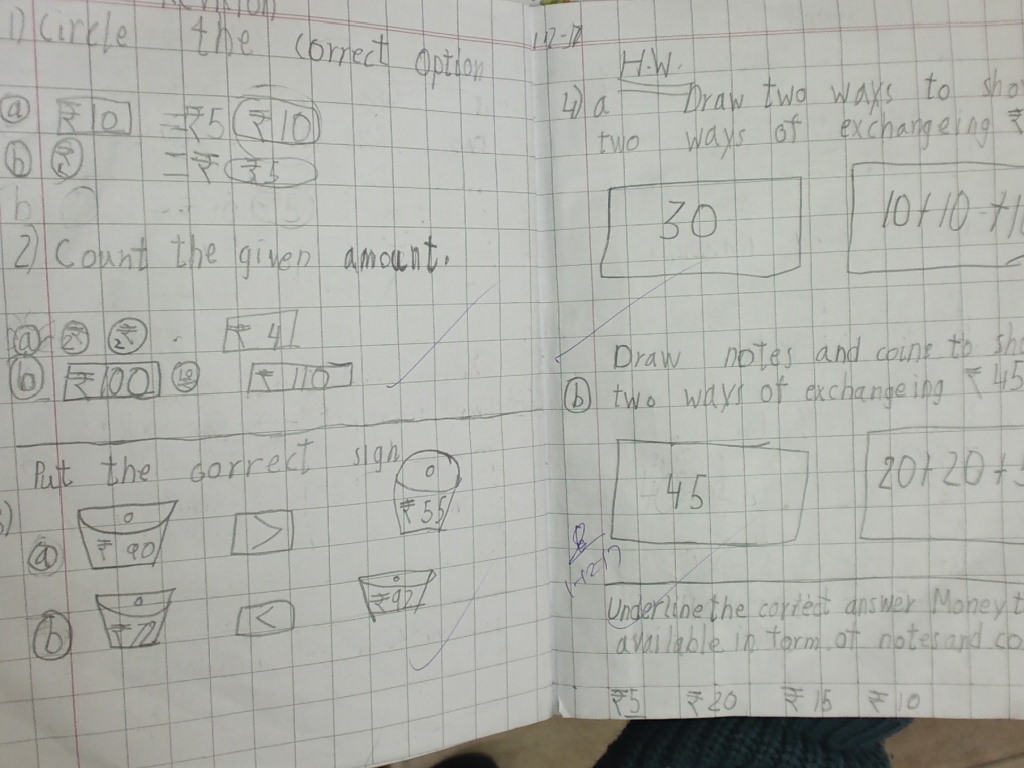 Revision
1) Circle the correct option
a ₹10 =₹5 ₹10
b ₹2 =₹ ₹5
b
2) Count the given amount.
a ₹2 ₹2 ₹ 4
b ₹100 10 ₹ 110
Put the correct sign
a ₹ 90 > ₹ 55
b ₹ 72 < ₹92
H.W.
4) a Draw two ways to sho
two ways of exchangeing ₹
30 10+10+10
Draw notes and coine to sho
b two ways of exchangeing ₹ 45
45 20+20+5
Underline the correct answer Money t
available in form of notes and co
₹5 ₹20 ₹15 ₹10